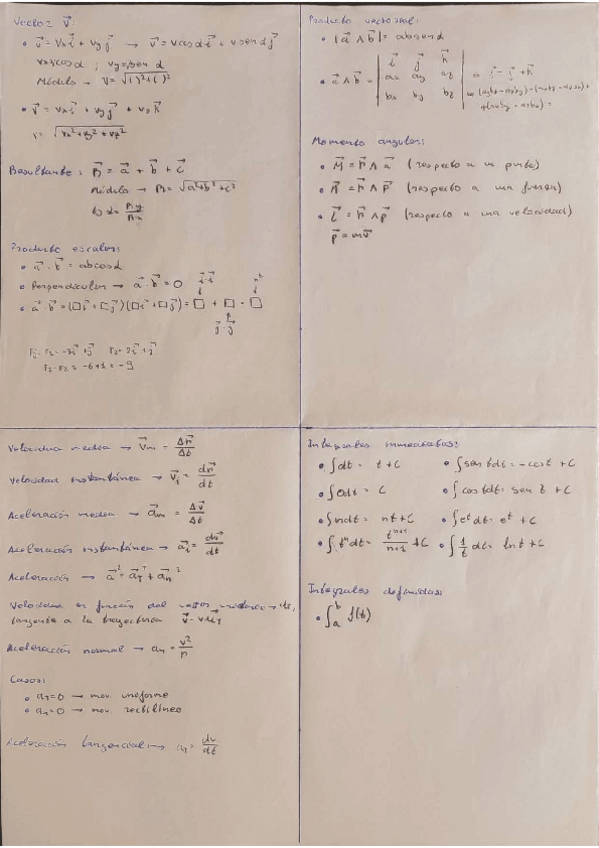 Vector v⃗:
• v⃗ = vx i⃗ + vy j⃗ → v⃗ = v cos α i⃗ + v sen α j⃗
Módulo → v = √( )² + ( )²
• v⃗ = vx i⃗ + vy j⃗ + vz k⃗
v = √vx² + vy² + vz²
Resultante: R⃗ = a⃗ + b⃗ + c⃗
Módulo → R = √a² + b² + c²
tg α = Ry/Rx
Producto escalar:
• a⃗ · b⃗ = ab cos α
• Perpendicular → a⃗ · b⃗ = 0
i⃗·i⃗
• a⃗ · b⃗ = (□i⃗ + □j⃗)(□i⃗ + □j⃗) = □ + □ = □
j⃗·j⃗
F1·F2 = -6+1 = -9
Producto vectorial:
• |a⃗ ∧ b⃗| = ab sen α
• a⃗ ∧ b⃗ = | i⃗ j⃗ k⃗ | = i⃗ - j⃗ + k⃗
ax ay az
bx by bz
Momento angular:
• M⃗ = r⃗ ∧ a⃗ (respecto a un punto)
• M⃗ = r⃗ ∧ F⃗ (respecto a una fuerza)
• L⃗ = r⃗ ∧ p⃗ (respecto a una velocidad)
p⃗ = mv⃗
Velocidad media → v⃗m = Δr⃗/Δt
Velocidad instantánea → v⃗i = dr⃗/dt
Aceleración media → a⃗m = Δv⃗/Δt
Aceleración instantánea → a⃗i = dv⃗/dt
Aceleración → a⃗² = a⃗T² + a⃗n²
Velocidad en función del vector unitario
tangente a la trayectoria v⃗ = v u⃗T
Aceleración normal → an = v²/r
Casos:
• aT=0 → mov. uniforme
• an=0 → mov. rectilíneo
Aceleración tangencial → aT = dv/dt
Integrales inmediatas:
• ∫dt = t + C
• ∫sen t dt = -cos t + C
• ∫0dt = C
• ∫cos t dt = sen t + C
• ∫n dt = nt + C
• ∫eᵗ dt = eᵗ + C
• ∫tⁿ dt = tⁿ⁺¹/n+1 + C
• ∫1/t dt = ln t + C
Integrales definidas:
• ∫ₐᵇ f(t)